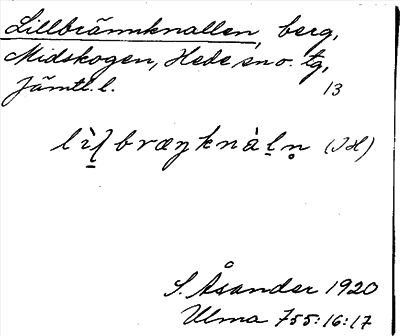 Lillbrännknallen, berg,
Midskogen, Hede sn o. tg,
Jämtl. l. 13
lìl̠bræŋknàl̠n̥ (JH)
S. Åsander 1920
Ulma 755:16:17